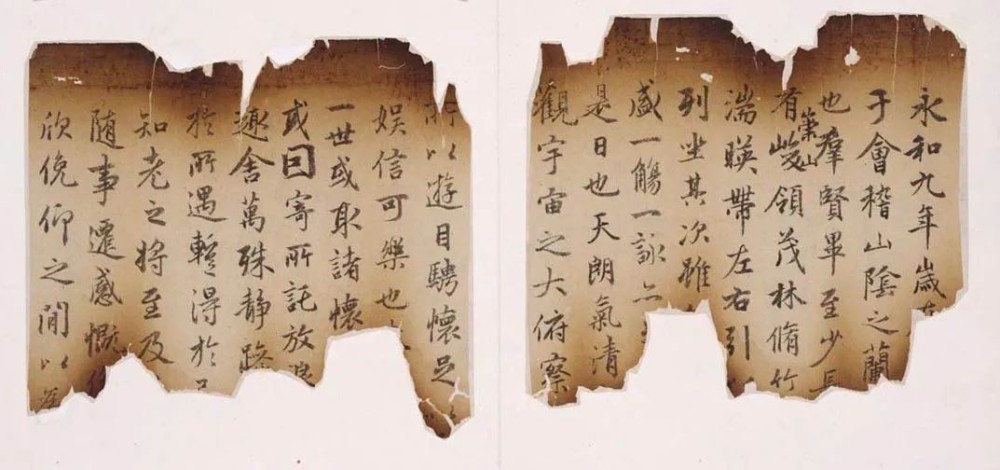 永和九年歲
于會稽山陰之蘭
也羣賢畢至少長
有崇山峻領茂林脩竹
湍暎帶左右引以
列坐其次雖
盛一觴一詠亦
是日也天朗氣清
觀宇宙之大俯察
所以遊目騁懷足以
娛信可樂也
一世或取諸懷
或因寄所託放浪
趣舍萬殊靜躁
於所遇蹔得於
知老之將至及
隨事遷感慨係
欣俛仰之間以為